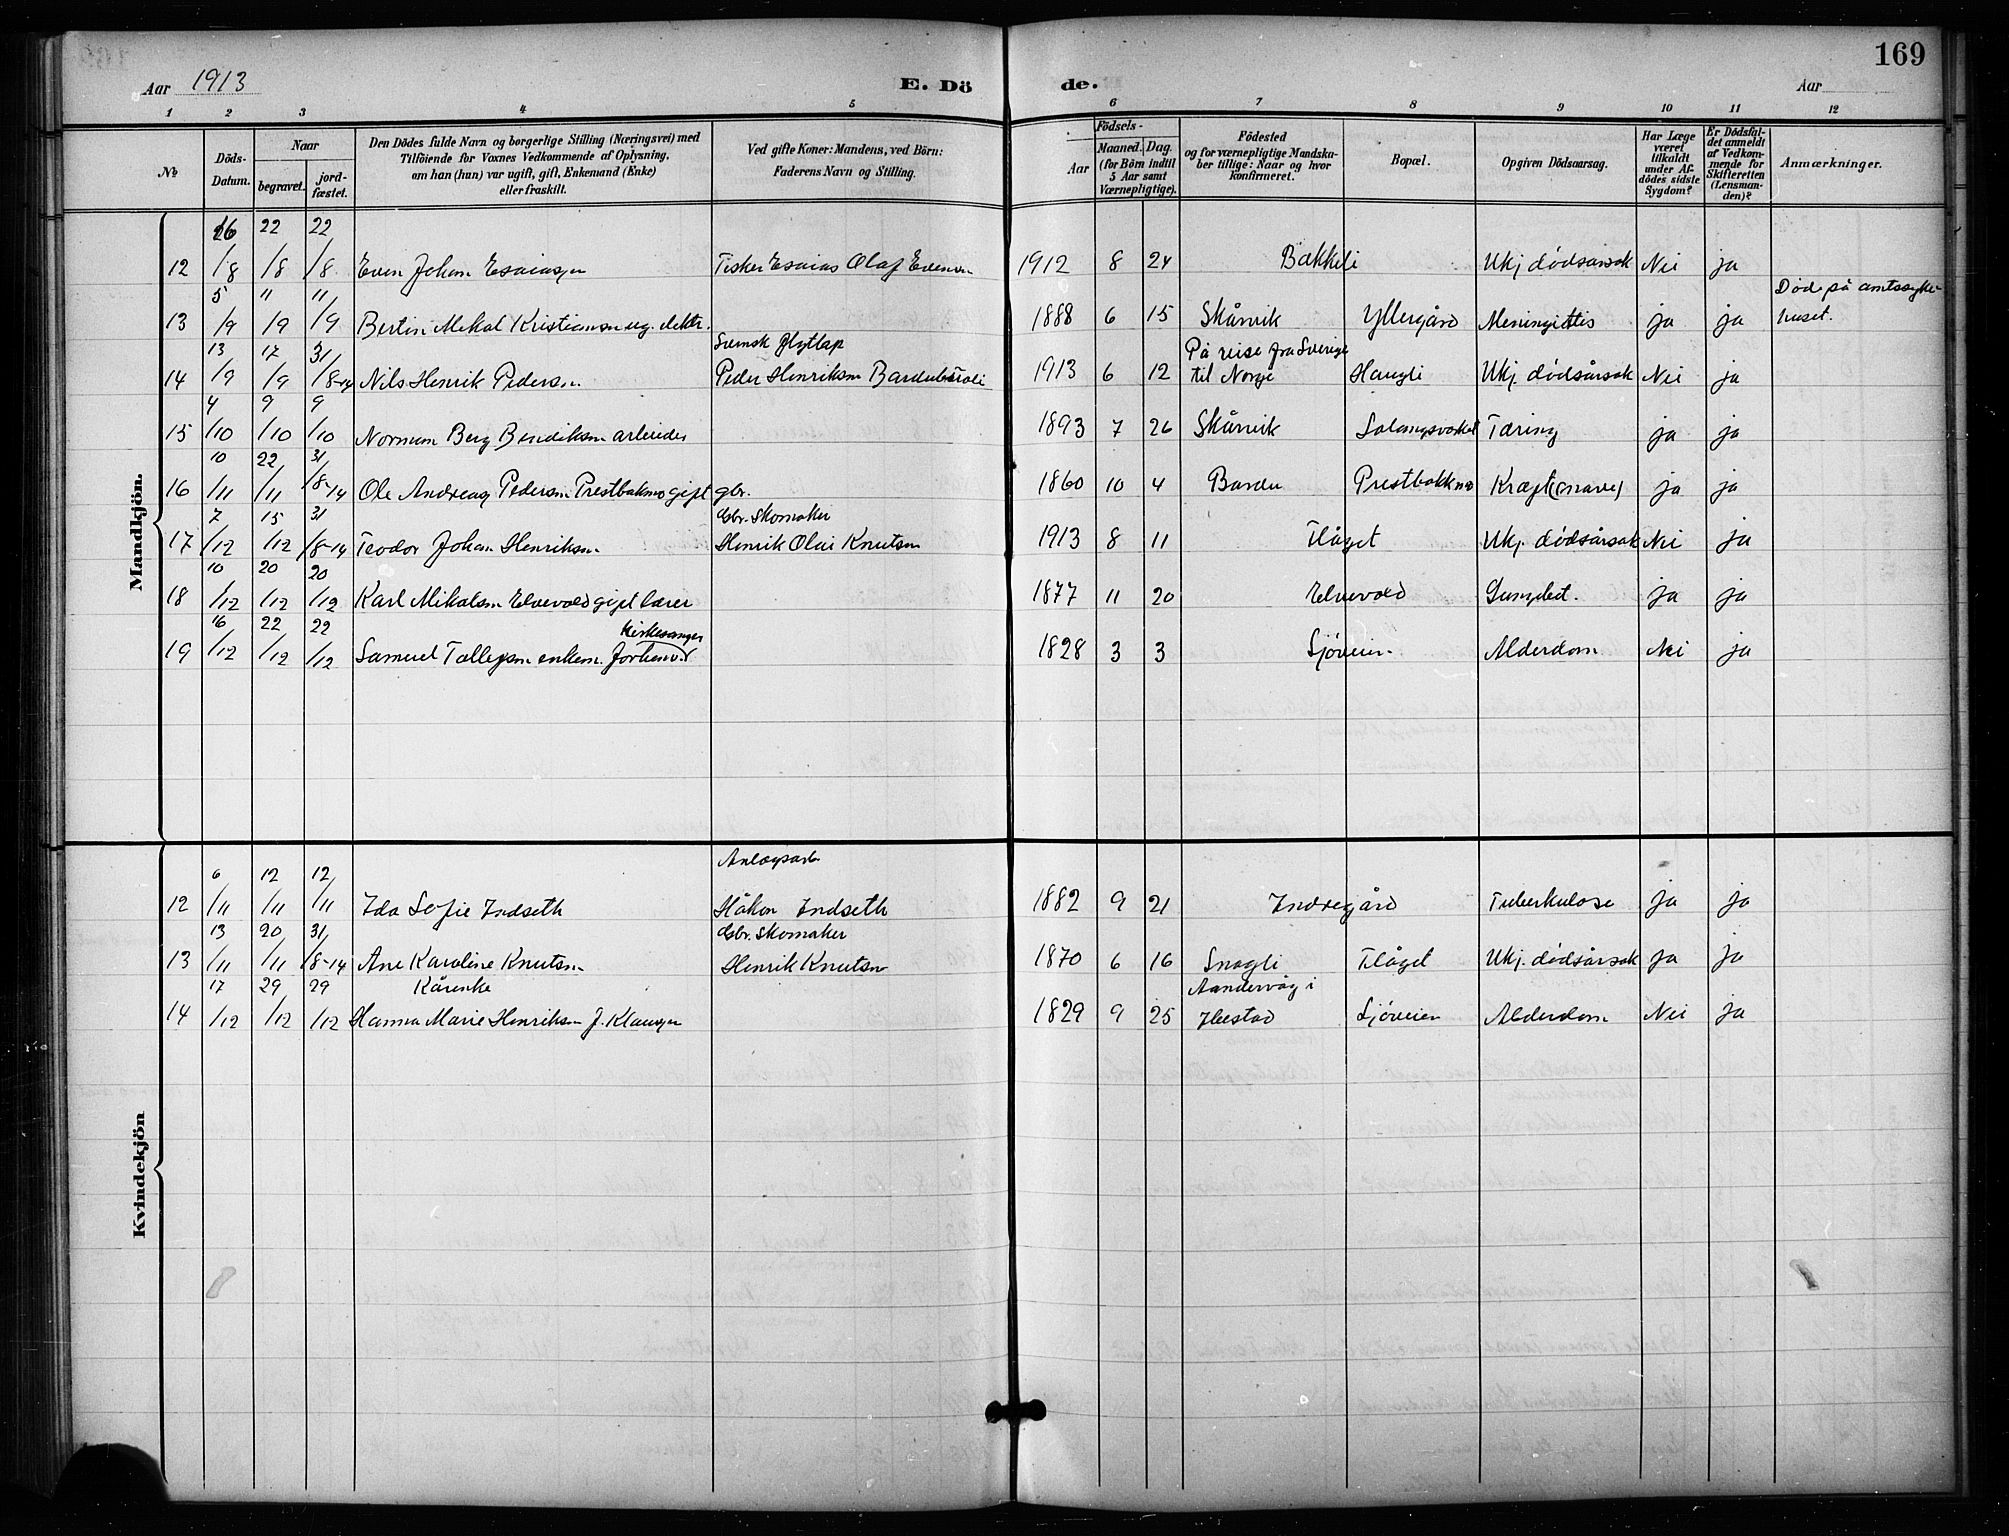 169
Aar 1913
E. Dö
de.
Aar
1 2 3 4 5 6 7 8 9 10 11 12
№
Döds-Datum.
Naar
begravet.
jord-fæstet.
Den Dödes fulde Navn og borgerlige Stilling (Næringsvei) med
Tilföiende for Voxnes Vedkommende af Oplysning,
om han (hun) var ugift, gift, Enkemand (Enke)
eller fraskilt.
Ved gifte Koner: Mandens, ved Börn:
Faderens Navn og Stilling.
Födsels-
Aar
Maaned. Dag.
(for Börn indtil
5 Aar samt
Værnepligtige).
Födested
og for værnepligtige Mandska-
ber tillige: Naar og hvor
konfirmeret.
Bopæl.
Opgiven Dödsaarsag.
Har Læge
været
tilkaldt
under Af-
dödes sidste
Sygdom?
Er Dödsfal-
det anmeldt
af Vedkom-
mende for
Skifteretten
(Lensman-
den)?
Anmærkninger.
Mandkjön.
26 22 22
12 /8 /8 /8 Even Johan Esaiassen Fisker Esaias Olaf Evensen 1912 8 24 Bakkeli Ukj dödsårsak Nei ja
5 11 11 Död på amtssyke-
13 /9 /9 /9 Bertin Mikal Kristiansen ug. 1888 6 15 Skårvik Yllergård Meningittis ja ja huset.
13 17 31 Svensk flytlap På reise fra Sverige
14 /9 /9 /8-14 Nils Henrik Pedersen Peder Henriksen 1913 6 12 til Norge Haugli Ukj. dödsårsak Nei ja
4 9 9
15 /10 /10 /10 Norman Berg Bendiksen arbeider 1893 7 26 Skårvik Salangsverket Tæring ja ja
10 22 31
16 /11 /11 /8-14 Ole Andreas Pedersen Prestbakmo gift gbr. 1860 10 4 Bardu Prestbakkmo Kræft ja ja
7 15 31 Gbr. Skomaker
17 /12 /12 /8-14 Teodor Johan Henriksen Henrik Olai Knutsen 1913 8 11 Flåget Ukj. dödsårsak Nei ja
10 20 20
18 /12 /12 /12 Karl Mikalsen Elvevold gift lærer 1877 11 20 Elvevold ja ja
16 22 22 kirkesanger
19 /12 /12 /12 Samuel Tollefsen enkem. Forhenv. 1828 3 3 Sjöveien Alderdom Nei ja
Kvindekjön
6 12 12 Anlægsarb.
12 /11 /11 /11 Ida Sofie Indseth Håkon Indseth 1882 9 21 Indregård Tuberkulose ja ja
13 20 31 Gbr. Skomaker
13 /11 /11 /8-14 Ane Karoline Knutsen Henrik Knutsen 1870 6 16 Snogli Flåget Ukj. dödsårsak ja ja
17 29 29 Kårenke Aandervåg i
14 /12 /12 /12 Hanna Marie Henriksen J. Klausen 1829 9 25 Ibestad Sjöveien Alderdom Nei ja